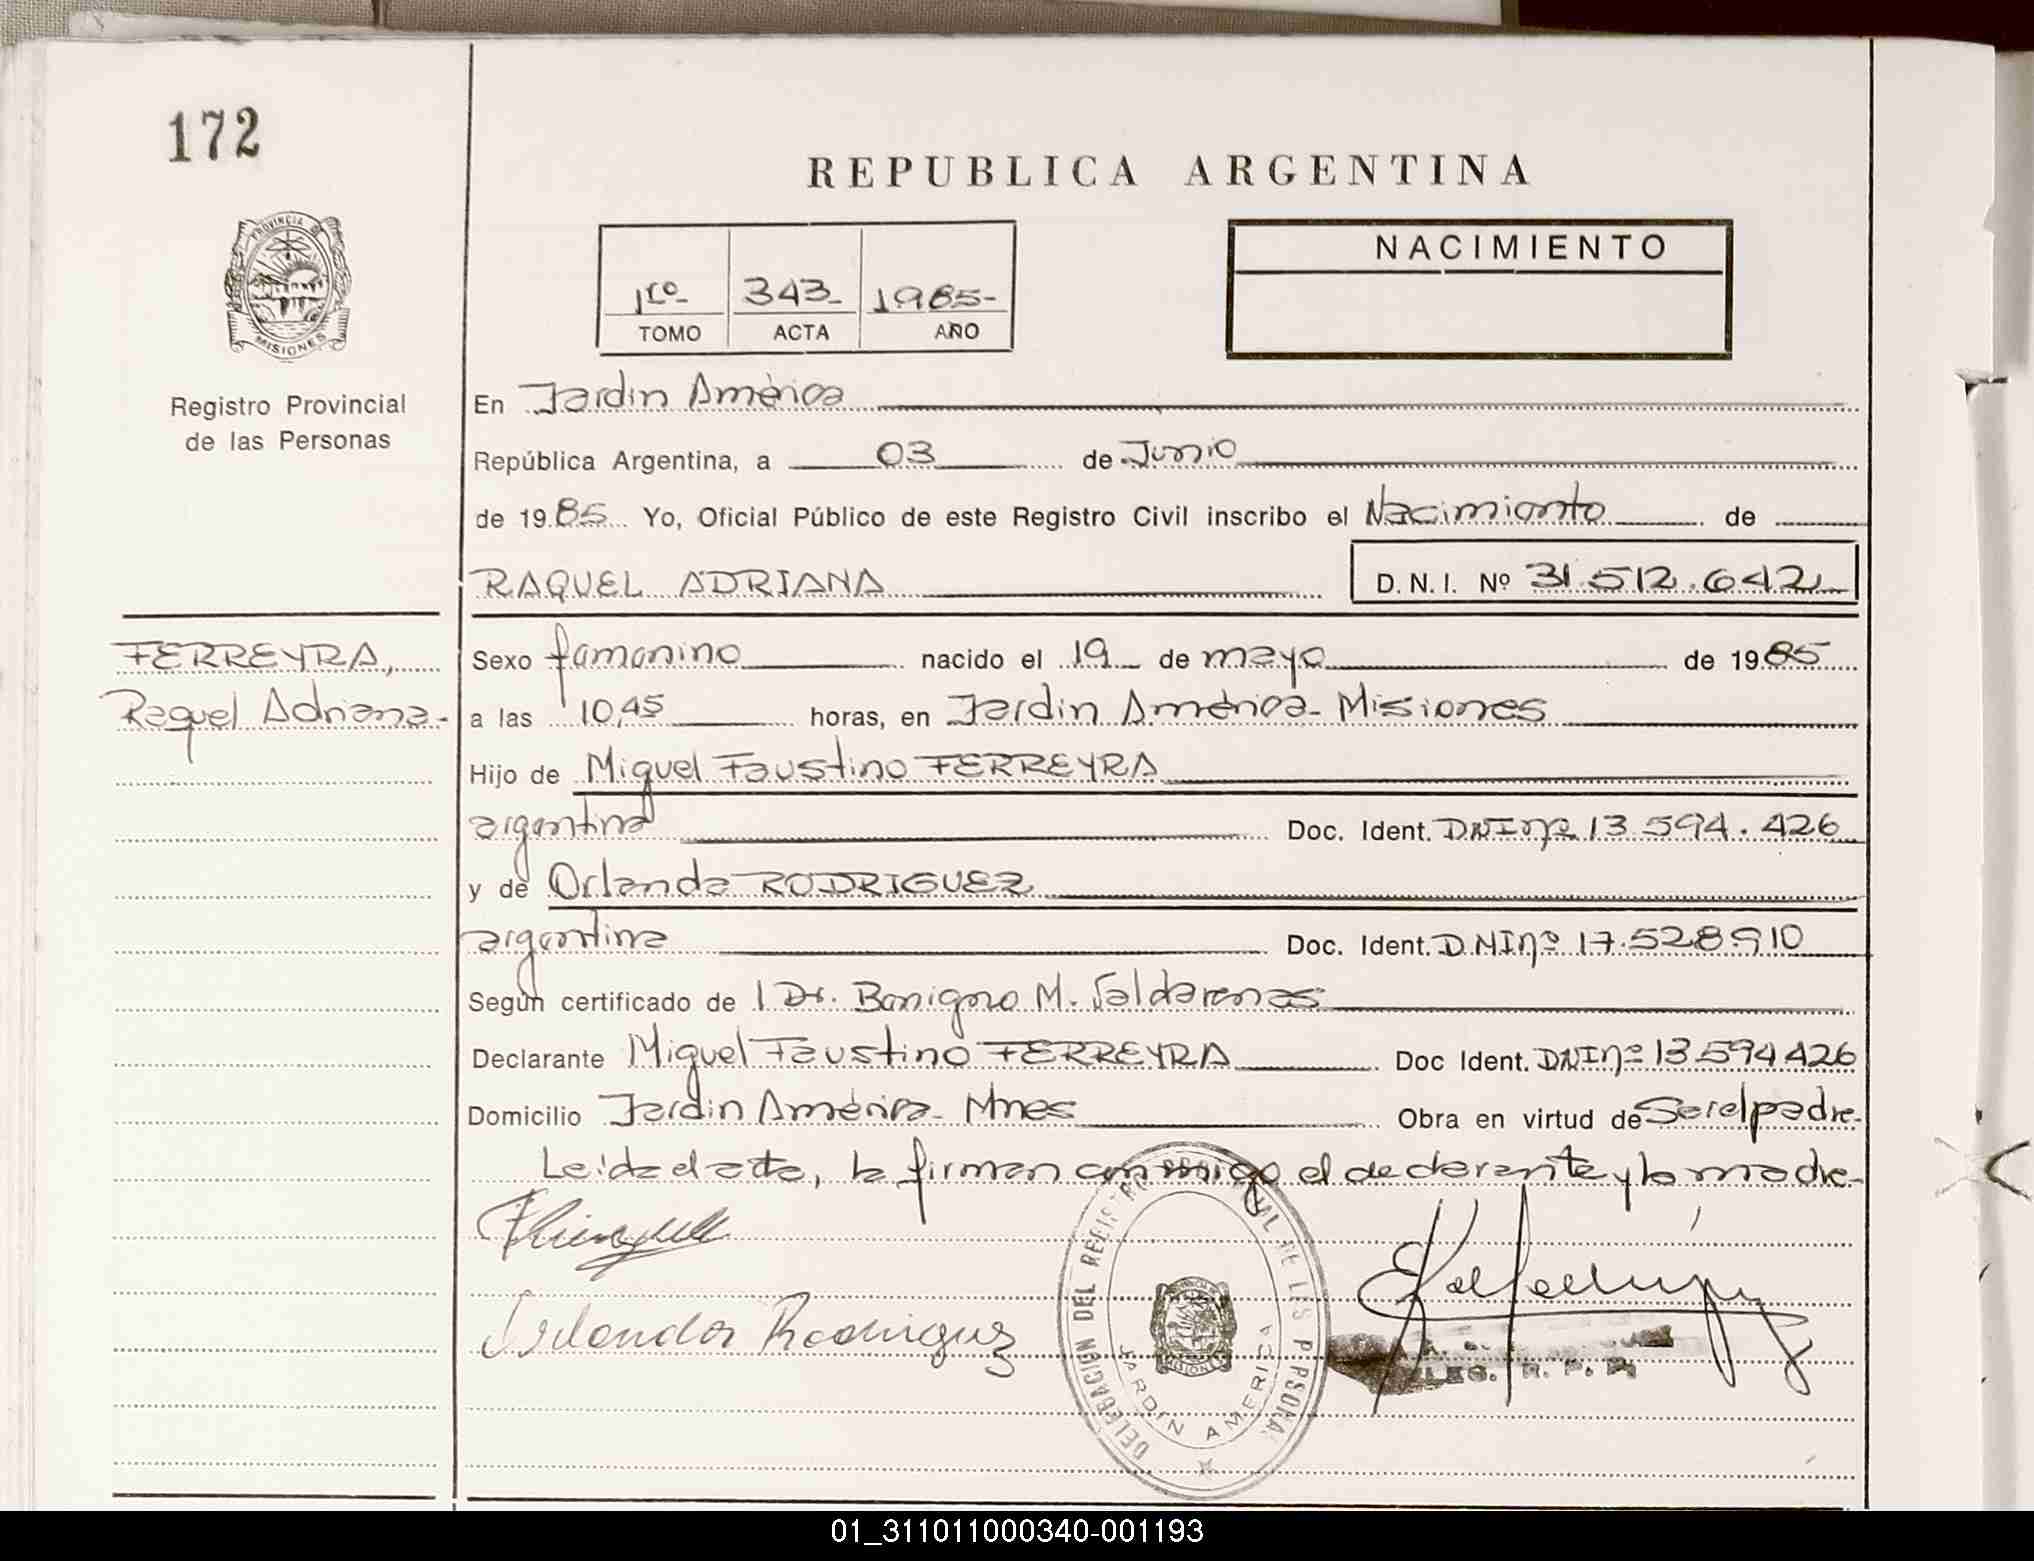 172
REPUBLICA ARGENTINA
PROVINCIA DE
MISIONES
Registro Provincial
de las Personas
1ro- 343- 1985-
TOMO ACTA AÑO
NACIMIENTO
En Jardin América
República Argentina, a 03 de Junio
de 1985 Yo, Oficial Público de este Registro Civil inscribo el Nacimiento de
RAQUEL ADRIANA
D.N.I. Nº 31.512.642
FERREYRA,
Raquel Adriana-
Sexo femenino nacido el 19 de mayo de 1985
a las 10,45 horas, en Jardin América- Misiones
Hijo de Miguel Faustino FERREYRA
argentina Doc. Ident. DNI nº 13.594.426
y de Orlanda RODRIGUEZ
argentina Doc. Ident. DNI nº 17.528910
Según certificado de l Dr. Benigno M. Valdarenas
Declarante Miguel Faustino FERREYRA Doc Ident. DNI nº 13594426
Domicilio Jardin América- Mnes Obra en virtud de Ser el padre-
Leida el acta, la firman conmigo el declarante y la madre-
Orlanda Rodriguez
DELEGACION DEL REGISTRO PROVINCIAL DE LAS PERSONAS
JARDIN AMERICA
MISIONES
R. P. P.
01_311011000340-001193